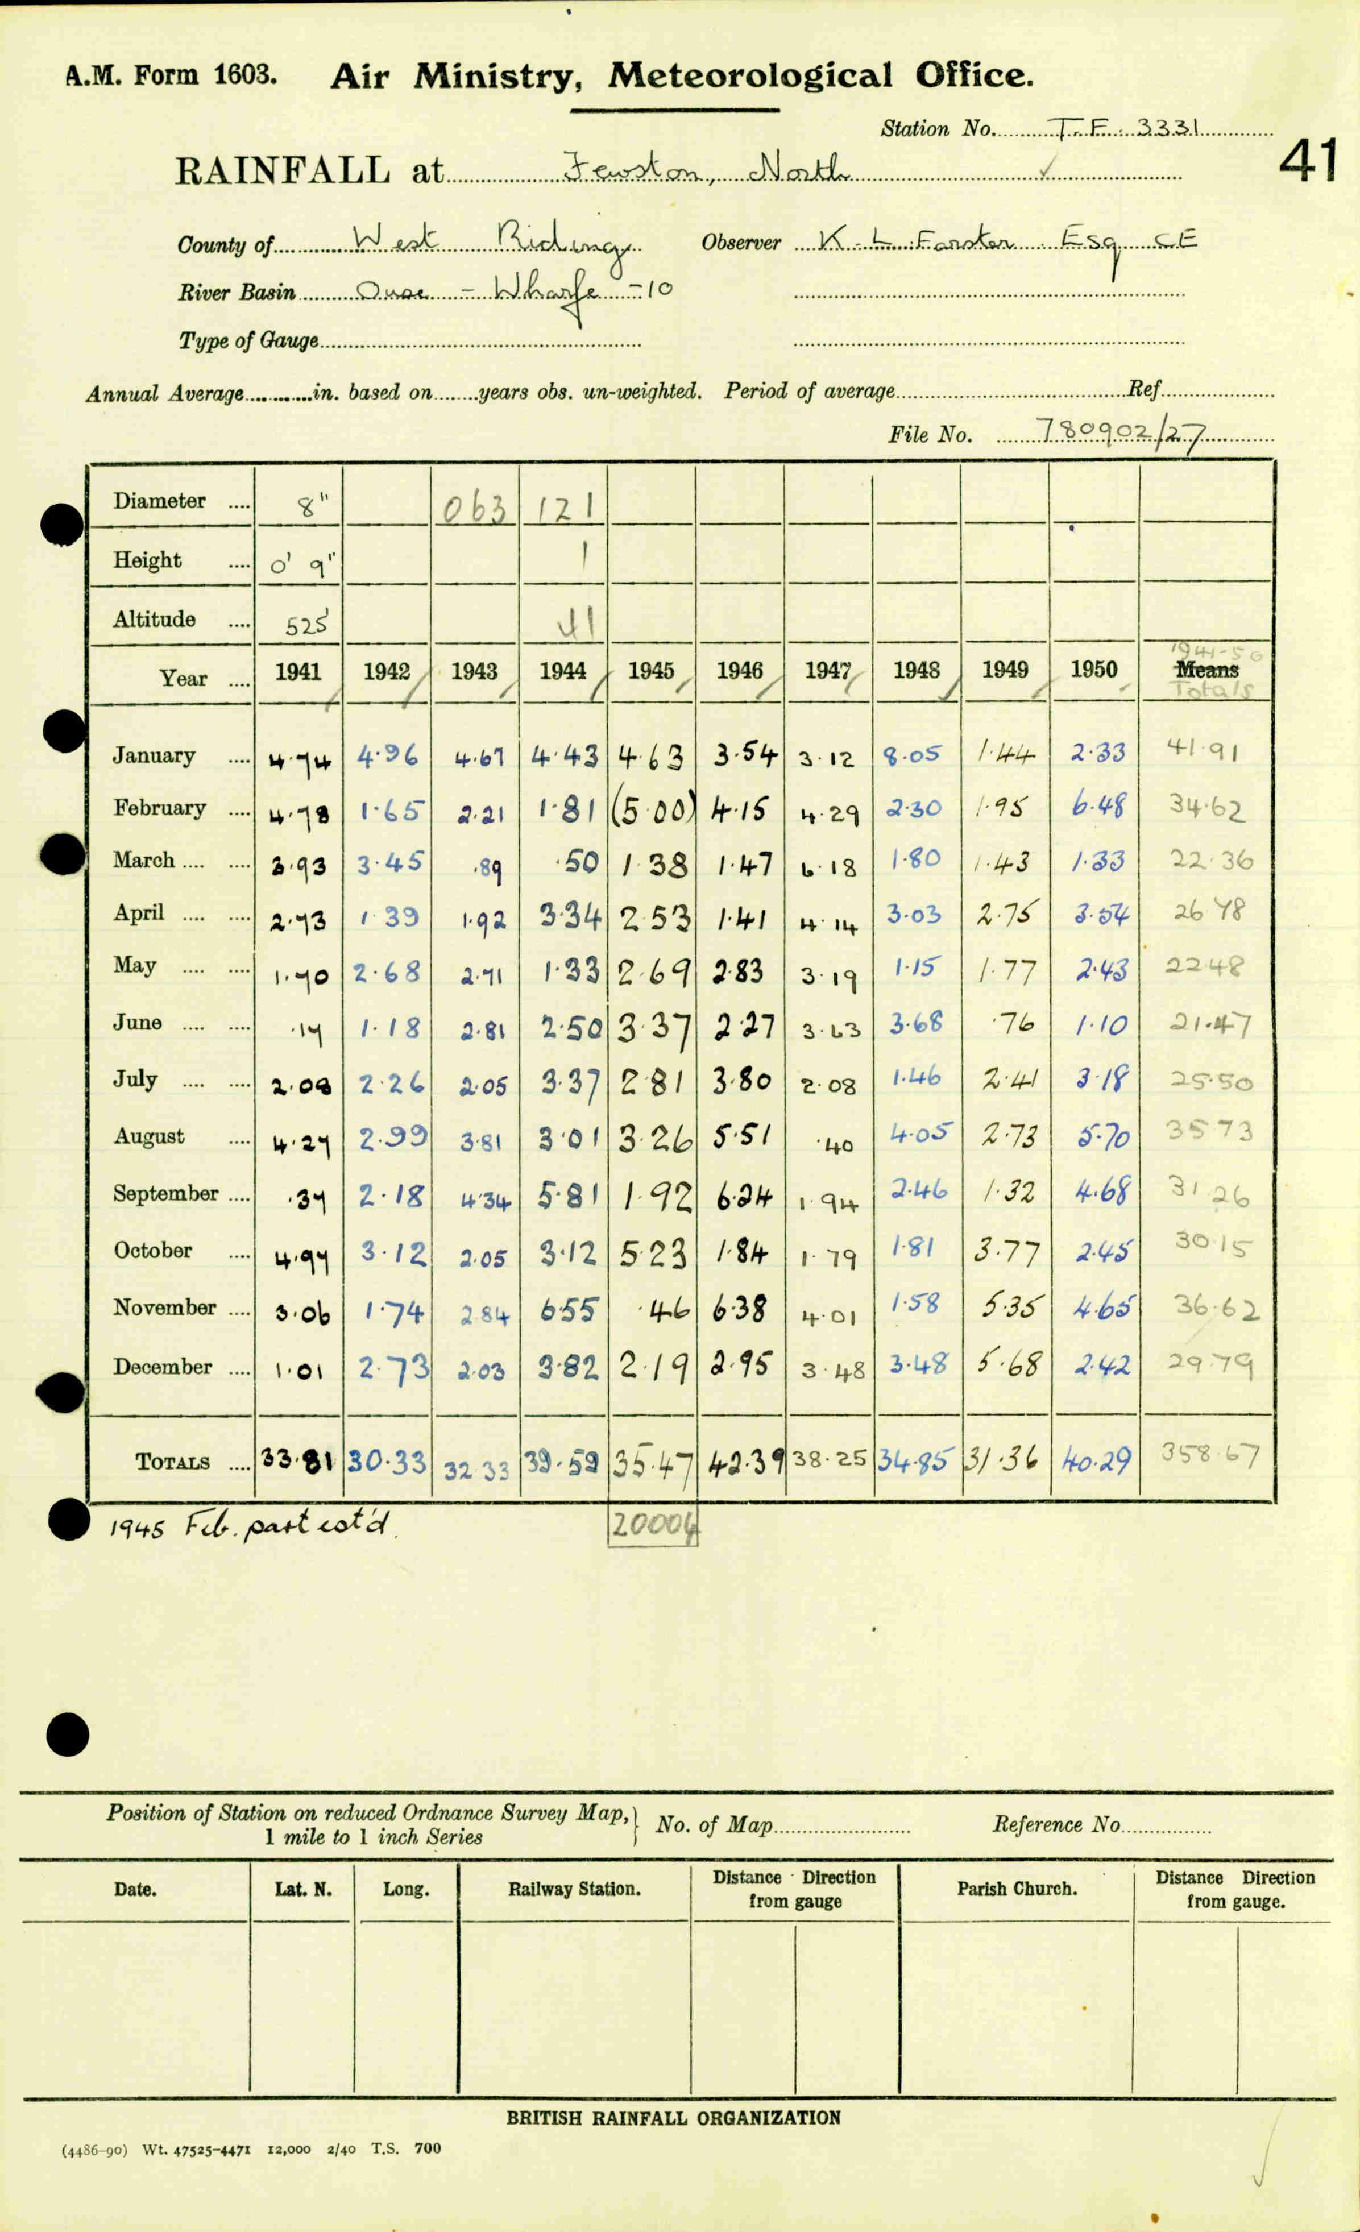 A.M. Form 1603. Air Ministry, Meteorological Office.
Station No. T.F. 3331
41
RAINFALL at Fewston, North ✓
County of West Riding Observer K. L. Forster Esq CE
River Basin Ouse - Wharfe -10
Type of Gauge
Annual Average in. based on years obs. un-weighted. Period of average Ref
File No. 780902/27
Diameter .... 8" 063 121
Height .... 0' 9" 1
Altitude .... 525' 41
1941-50
Year .... 1941 1942 1943 1944 1945 1946 1947 1948 1949 1950 Means
Totals
January .... 4.74 4.96 4.67 4.43 4.63 3.54 3.12 8.05 1.44 2.33 41.91
February .... 4.78 1.65 2.21 1.81 (5.00) 4.15 4.29 2.30 1.95 6.48 34.62
March .... .... 3.93 3.45 .89 .50 1.38 1.47 6.18 1.80 1.43 1.33 22.36
April .... .... 2.73 1.39 1.92 3.34 2.53 1.41 4.14 3.03 2.75 3.54 26.78
May .... .... 1.70 2.68 2.71 1.33 2.69 2.83 3.19 1.15 1.77 2.43 22.48
June .... .... .17 1.18 2.81 2.50 3.37 2.27 3.63 3.68 .76 1.10 21.47
July .... .... 2.08 2.26 2.05 3.37 2.81 3.80 2.08 1.46 2.41 3.18 25.50
August .... 4.27 2.99 3.81 3.01 3.26 5.51 .40 4.05 2.73 5.70 35.73
September .... .37 2.18 4.34 5.81 1.92 6.24 1.94 2.46 1.32 4.68 31.26
October .... 4.97 3.12 2.05 3.12 5.23 1.84 1.79 1.81 3.77 2.45 30.15
November .... 3.06 1.74 2.84 6.55 .46 6.38 4.01 1.58 5.35 4.65 36.62
December .... 1.01 2.73 2.03 3.82 2.19 2.95 3.48 3.48 5.68 2.42 29.79
TOTALS .... 33.81 30.33 32.33 39.59 35.47 42.39 38.25 34.85 31.36 40.29 358.67
1945 Feb. part est'd.
Position of Station on reduced Ordnance Survey Map,} No. of Map Reference No.
1 mile to 1 inch Series
Date. Lat. N. Long. Railway Station. Distance Direction from gauge Parish Church. Distance Direction from gauge.
BRITISH RAINFALL ORGANIZATION
(4486-90) Wt. 47525-4471 12,000 2/40 T.S. 700